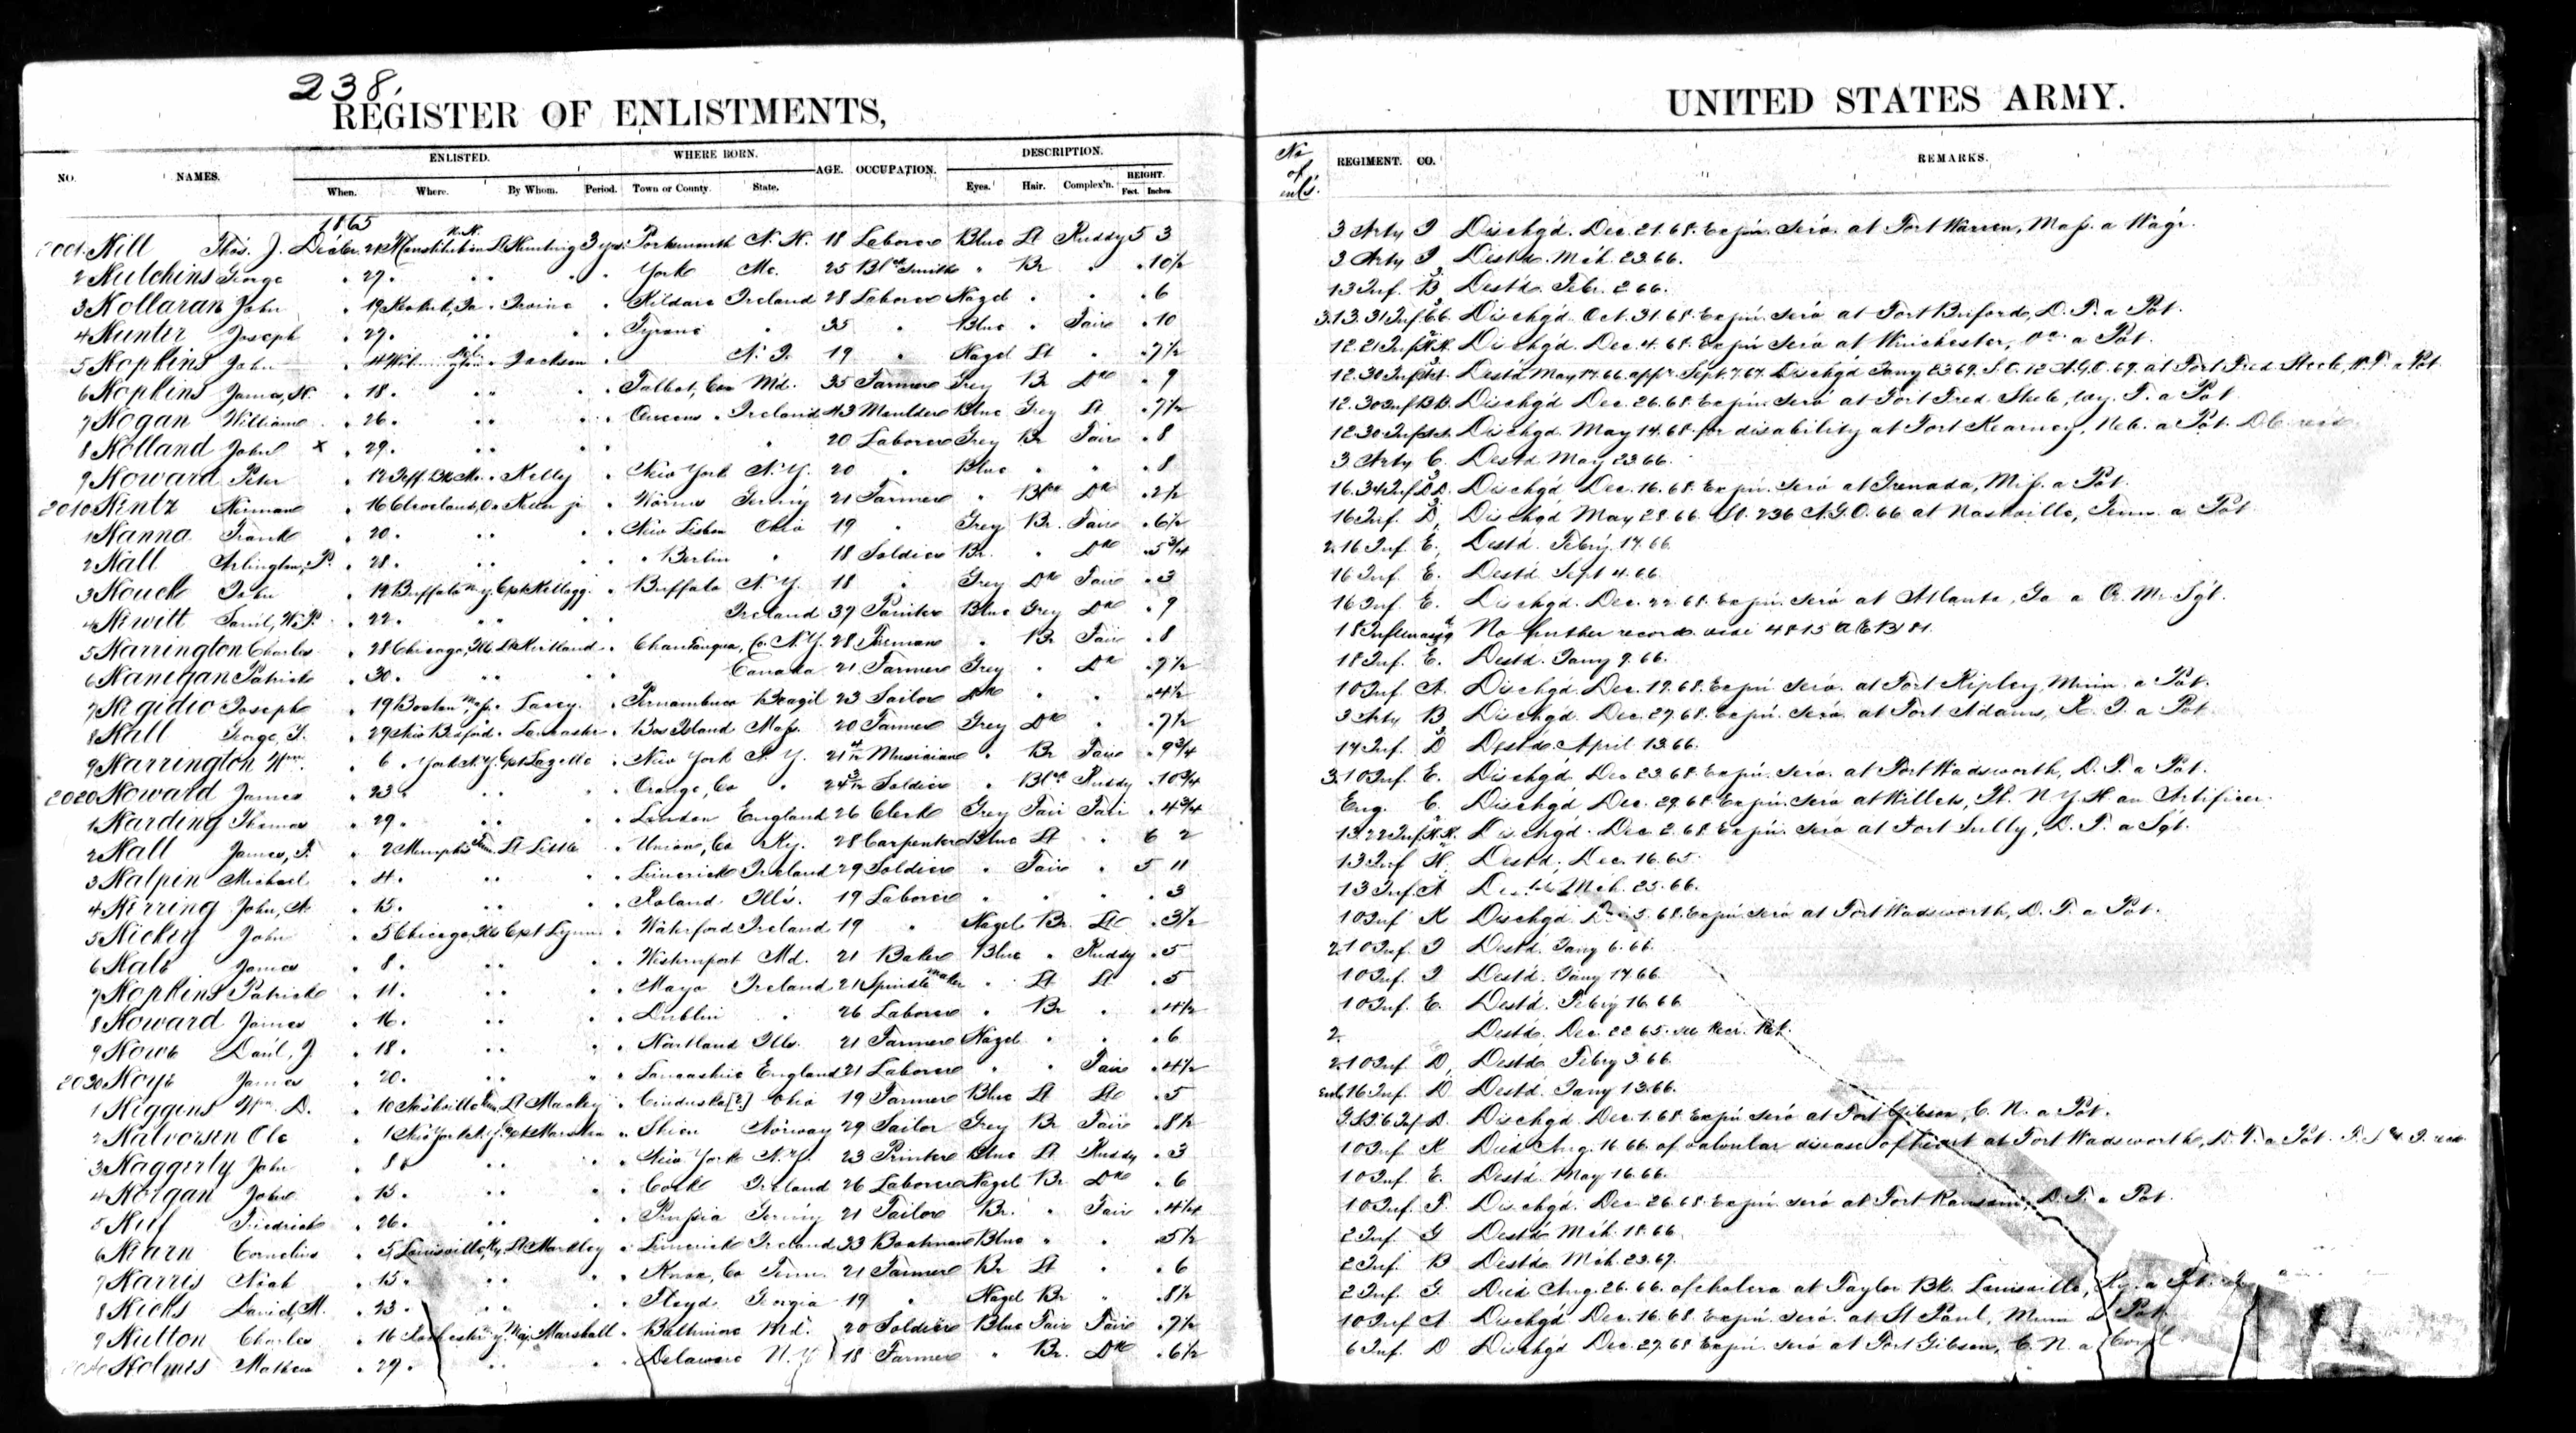 238.
REGISTER OF ENLISTMENTS,
NO. NAMES. ENLISTED. When. Where. By Whom. Period. WHERE BORN. Town or County. State. AGE. OCCUPATION. DESCRIPTION. Eyes. Hair. Complex'n. HEIGHT. Feet. Inches.
1865
2001 Hill Thos. J. Decber. 21 Constitution N.H. Lt Hunting 3 yrs. Portsmouth N. H. 18 Laborer Blue Lt Ruddy 5 3
2 Hutchins George " 27 " " " " York Me. 25 Bl'k Smith " Br " " 10½
3 Hollaran John " 19 Keokuk, Ia " Irvine " Kildare Ireland 28 Laborer Hazel " " " 6
4 Hunter Joseph " 27 " " " " Tyrone " 35 " Blue " Fair " 10
5 Hopkins John " 4 Wilmington Del. " Jackson " N. J. 19 " Hazel Lt " " 7½
6 Hopkins James, H. " 18 " " " " Talbot, Co Md. 35 Farmer Grey Br Dk " 9
7 Hogan William " 26 " " " " Queens " Ireland 43 Moulder Blue Grey Lt " 7½
8 Holland John X " 29 " " " " " 20 Laborer Grey Br Fair " 8
9 Howard Peter " 12 Jeff. Bks Mo. " Kelly " New York N.Y. 20 " Blue " " " 8
2010 Hintz Herman " 16 Cleveland, O. " Keeler jr " Worms Ger'ny 21 Farmer " Blk Dk " 2½
1 Hanna Frank " 20 " " " " New Lisbon Ohio 19 " Grey Br. Fair " 6½
2 Hall Arlington, P. " 28 " " " " Berlin " 18 Soldier Br. " Dk " 5¾
3 Houck John " 12 Buffalo N.Y. Capt Kellogg " Buffalo N.Y. 18 " Grey Dk Fair " 3
4 Hewitt Saml, W. P. " 22 " " " Ireland 37 Painter Blue Grey Dk " 9
5 Harrington Charles " 28 Chicago, Ills Lt Kirtland " Chautauqua, Co. N.Y. 28 Fireman " Br Fair " 8
6 Hanegan Patrick " 30 " " " Canada 21 Farmer Grey " Dk " 7½
7 Hegidio Joseph " 19 Boston Mass " Lacey " Pernambuco Brazil 23 Sailor Dk " " " 4½
8 Hall George, T. " 29 New Bedford " Lancaster " Bos Island Mass. 20 Farmer Grey Dk " " 7½
9 Harrington Wm. " 6 " York N.Y. Capt Lazelle " New York N. Y. 21 Musician " Br Fair " 9¾
2020 Howard James " 23 " " " Orange, Co " 24 Soldier " Bl'k Ruddy " 10¾
1 Harding Thomas " 29 " " " London England 26 Clerk Grey Fair Fair " 4¾
2 Hall James, F. " 2 Memphis Tenn. Lt Little " Union, Co Ky. 28 Carpenter Blue Lt " 6 2
3 Halpin Michael " 4 " " " Limerick Ireland 29 Soldier " Fair " 5 11
4 Herring John, A. " 15 " " " Roland Ills. 19 Laborer " " " " 3
5 Hickey John " 5 Chicago, Ills Capt Lynn " Waterford Ireland 19 " Hazel Br. Lt " 3½
6 Hale James " 8 " " " Westernport Md. 21 Baker Blue " Ruddy " 5
7 Hopkins Patrick " 11 " " " Mayo Ireland 21 Spindle maker " Lt Lt " 5
8 Howard James " 16 " " " Dublin " 26 Laborer " Br " " 4½
9 Howe Danl, J. " 18 " " " Hartland Ills. 21 Farmer Hazel " " " 6
2030 Hoye James " 20 " " " Lancashire England 21 Laborer " " Fair " 4½
1 Higgens Wm. D. " 10 Nashville Tenn. Lt Mackey " Cinduska [?] Ohio 19 Farmer Blue Lt Lt " 5
2 Halvorsen Ole " 1 New York N.Y. Capt Marston " Skien Norway 29 Sailor Grey Br Fair " 8½
3 Haggerty John " 8 " " " New York N.Y. 23 Printer Blue Lt Ruddy " 3
4 Horgan John " 15 " " " Cork Ireland 26 Laborer Hazel Br Dk " 6
5 Huf Friedrich " 26 " " " Prussia Ger'ny 21 Tailor Br. " Fair " 4¼
6 Hearn Cornelius " 5 Louisville, Ky. Lt Markley " Limerick Ireland 33 Boatman Blue " " " 5½
7 Harris Noah " 15 " " " Knox, Co Tenn. 21 Farmer Br Lt " " 6
8 Hicks David, M. " 23 " " " Floyd Georgia 19 " Hazel Br " " 8½
9 Hutton Charles " 16 Rochester N.Y. Maj. Marshall " Baltimore Md. 20 Soldier Blue Fair Fair " 7½
Holmes Mathew " 29 " " " Delaware N.Y. 18 Farmer " Br. Dk " 6½
UNITED STATES ARMY.
No of enls. REGIMENT. CO. REMARKS.
3 Arty I Dischg'd. Dec. 21. 68. Expn. Serv. at Fort Warren, Mass. a Wag'r.
3 Arty I Dest'd. Mch. 23. 66.
13 Inf. B Dest'd. Feb. 2 66.
3. 13. 31 Inf. Dischg'd Oct. 31. 68. Expn. Serv at Fort Buford, D. T. a Pvt.
12. 21 Inf. Dischg'd. Dec. 4. 68. Expn Serv at Winchester, Va. a Pvt.
12. 30 Inf. Dest'd May 17. 66. app'r. Sept. 7. 67. Dischg'd Jany 23 69. S.O. 12 A.G.O. 69. at Fort Fred Steele, W.T. a Pvt
12. 30 Inf. Dischg'd Dec. 26. 68. Expn. Serv at Fort Fred Steele, Wy. T. a Pvt
12. 30 Inf. Dischg'd. May 14. 68. for disability at Fort Kearney, Neb. a Pvt.
3 Arty C. Dest'd May 23. 66.
16. 34 Inf. Dischg'd Dec. 16. 68. Expn. Serv at Grenada, Miss. a Pvt.
16 Inf. D, Dischg'd May 28. 66. S.O. 236 A.G.O. 66 at Nashville, Tenn. a Pvt
2. 16 Inf. E. Dest'd. Feb'ry. 17. 66.
16 Inf. E. Dest'd. Sept 4. 66.
16 Inf. E. Dischg'd. Dec. 22. 68. Expn. Serv at Atlanta, Ga. a Q. M. Sgt.
18 Inf. unass'gd No further record. vide 4815 A (EB) 81.
18 Inf. E. Dest'd. Jany 9. 66.
10 Inf. A. Dischg'd. Dec. 19. 68. Expn. Serv. at Fort Ripley, Minn. a Pvt.
3 Arty B Dischg'd. Dec. 29. 68. Expn. Serv. at Fort Adams, R. I. a Pvt
17 Inf. D Dest'd. April 13. 66.
3. 10 Inf. E. Dischg'd Dec 23. 68. Expn. Serv. at Fort Wadsworth, D. T. a Pvt.
Eng. C. Dischg'd Dec. 29. 68. Expn. Serv at Willets, Pt. N. Y. H. an Artificer.
13. 22 Inf. Dischg'd. Dec 2. 68. Expn. Serv at Fort Sully, D. T. a Sgt.
13 Inf H. Dest'd. Dec. 16. 65.
13 Inf. A Dest'd. Mch. 25. 66.
10 Inf K Dischg'd. Dec. 5. 68. Expn. Serv at Fort Wadsworth, D. T. a Pvt.
2. 10 Inf. I Dest'd. Jany 6. 66.
10 Inf. I Dest'd. Jany 17. 66.
10 Inf. E. Dest'd. Feb'ry 16. 66.
2. Dest'd. Dec. 22 65. see Recr. Ret.
2. 10 Inf. D, Dest'd. Feb'ry 3 66.
16 Inf. D Dest'd. Jany 13. 66.
6 Inf. D. Dischg'd. Dec. 1. 68. Expn. Serv at Fort Gibson, C. N. a Pvt.
10 Inf K Died Aug. 16. 66. of valvular disease of heart at Fort Wadsworth, D. T. a Pvt.
10 Inf. E. Dest'd. May 16. 66.
10 Inf. F. Dischg'd. Dec. 26. 68. Expn. Serv at Fort Ransom, D. T. a Pvt.
2 Inf. G Dest'd. Mch. 18. 66.
2 Inf. B Dest'd. Mch. 23. 67.
2 Inf. G. Died Aug. 26. 66. of cholera at Taylor Bk. Louisville, Ky. a Pvt.
10 Inf A Dischg'd Dec. 16. 68. Expn. Serv. at St Paul, Minn a Pvt
6 Inf. D Dischg'd Dec. 27. 68 Expn. Serv at Fort Gibson, C. N. a Corpl